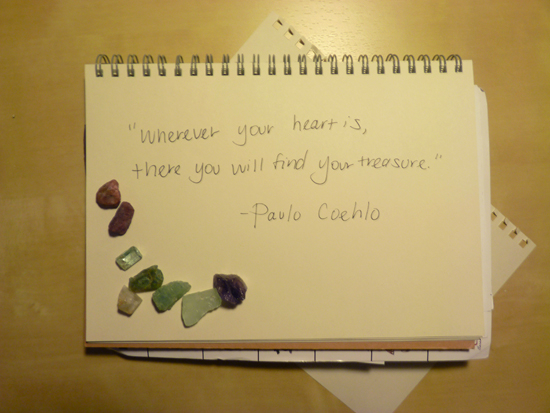 "Wherever your heart is,
there you will find your treasure."
-Paulo Coehlo